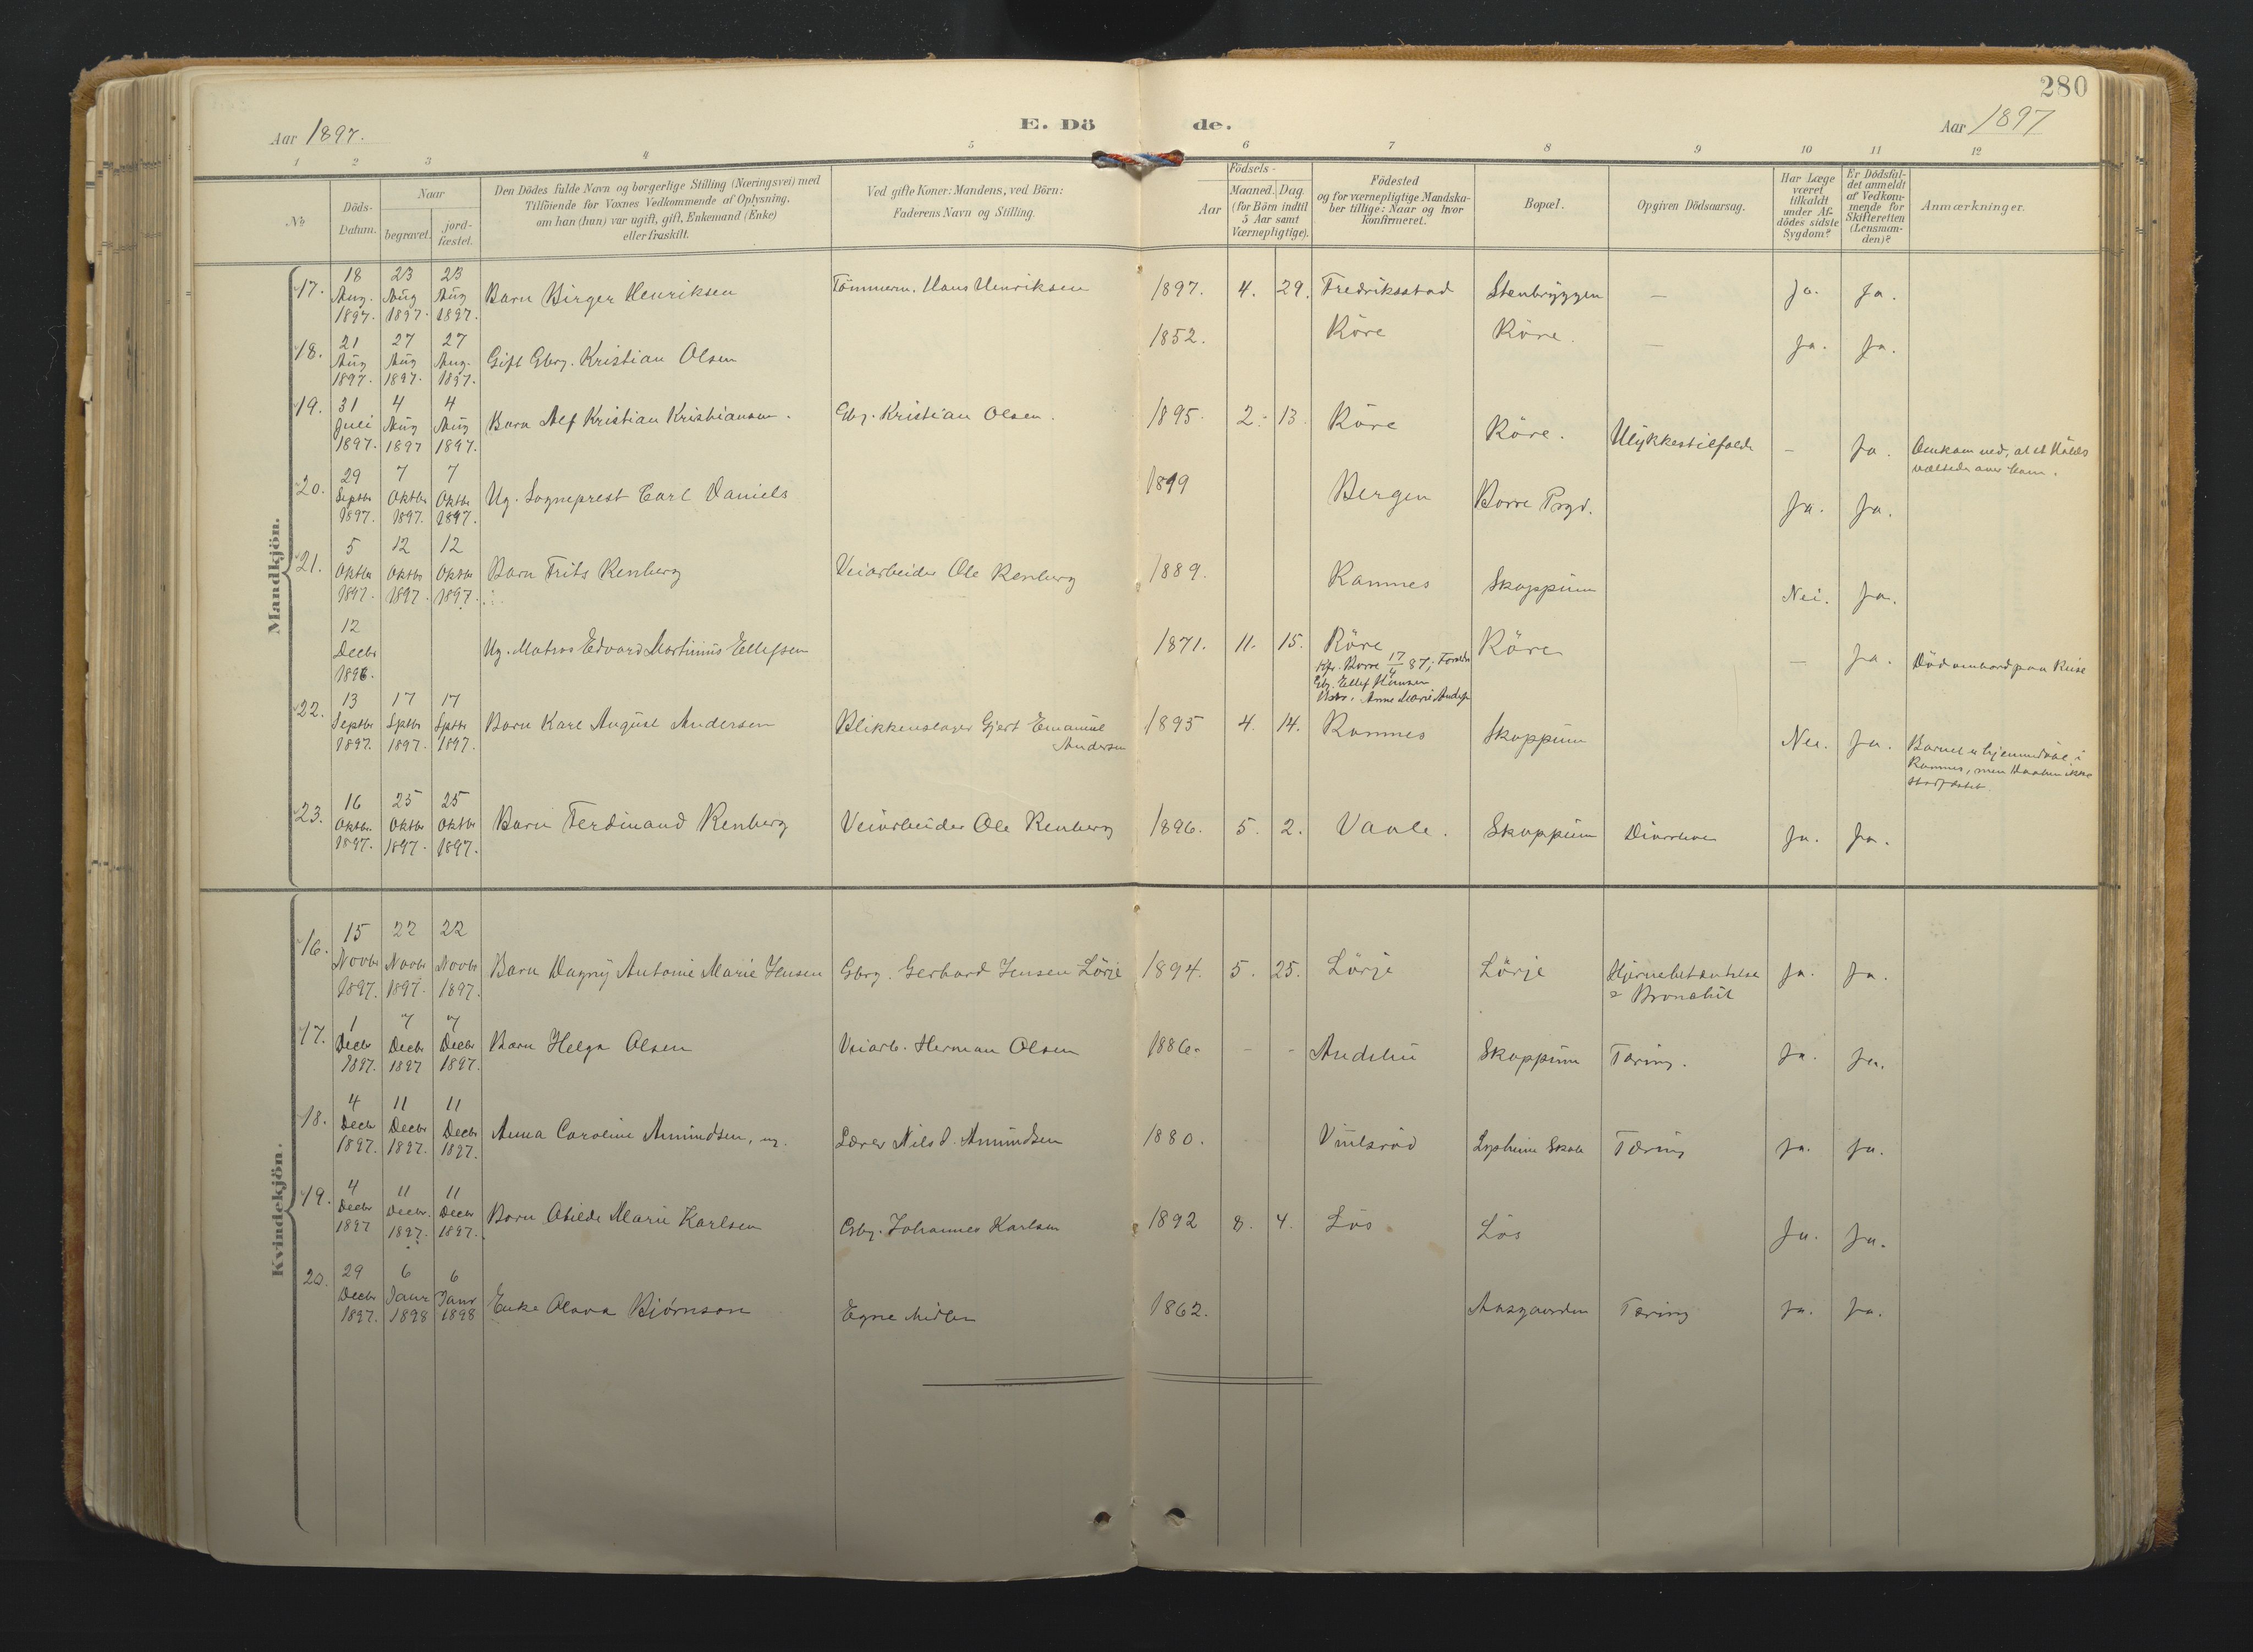 280
Aar 1897.
E. Dö de.
Aar 1897
1 2 3 4 5 6 7 8 9 10 11 12
No
Döds-Datum.
Naar
begravet.
jord-fæstet.
Den Dödes fulde Navn og borgerlige Stilling (Næringsvei) med
Tilföiende for Voxnes Vedkommende af Oplysning,
om han (hun) var ugift, gift, Enkemand (Enke)
eller fraskilt.
Ved gifte Koner: Mandens, ved Börn:
Faderens Navn og Stilling.
Födsels-
Aar
Maaned. Dag.
(for Börn indtil
5 Aar samt
Værnepligtige).
Födested
og for værnepligtige Mandska-
ber tillige: Naar og hvor
konfirmeret.
Bopæl.
Opgiven Dödsaarsag.
Har Læge
været
tilkaldt
under Af-
dödes sidste
Sygdom?
Er Dödsfal-
det anmeldt
af Vedkom-
mende for
Skifteretten
(Lensman-
den)?
Anmærkninger.
Mandkjön.
17. 18 Aug. 1897. 23 Aug 1897. 23 Aug 1897. Barn Birger Henriksen Tömmerm. Hans Henriksen 1897. 4. 29. Fredriksstad Stenbryggen — Ja. Ja.
18. 21 Aug 1897. 27 Aug 1897. 27 Aug. 1897. Gift Gbrg. Kristian Olsen 1852. Röre Röre. — Ja. Ja.
19. 31 Juli 1897. 4 Aug 1897 4 Aug 1897. Barn Alf Kristian Kristiansen. Gbg. Kristian Olsen. 1895. 2. 13. Röre Röre. Ulykkestilfælde — Ja. Omkom ved, at et
væltede over ham.
20. 29 Septbr 1897. 7 Oktbr 1897. 7 Oktbr 1897. Ug. Sogneprest Carl Daniels 1819 Bergen Borre Prgd. Ja. Ja.
21. 5 Oktbr 1897. 12 Oktbr 1897. 12 Oktbr 1897. Barn Frits Renberg Veiarbeider Ole Renberg 1889. Ramnes Skoppum Nei. Ja.
12 Decbr 1896. Ug. Matros Edvard Martinius Ellefsen 1871. 11. 15. Röre
Kfr. Borre 17/4 87; Forældre
Gbg. Ellef Hansen
Anne Marie Andersd.
Röre — Ja. Död ombord paa Reise
22. 13 Septbr 1897. 17 Sptbr 1897. 17 Sptbr 1897. Barn Karl August Andersen Blikkenslager Gjert Emanuel
Andersen 1895 4. 14. Ramnes Skoppum Nei. Ja. Barnet er hjemmedöbt i
Ramnes, men Daaben ikke
stadfæstet.
23. 16 Oktbr. 1897. 25 Oktbr 1897. 25 Oktbr 1897. Barn Ferdinand Renberg Veiarbeider Ole Renberg 1896. 5. 2. Vaale. Skoppum Diarrhoe Ja. Ja.
Kvindekjön.
16. 15 Novbr 1897. 22 Novbr 1897. 22 Novbr 1897. Barn Dagny Antonie Marie Jensen Gbrg. Gerhard Jensen Lörje 1894. 5. 25. Lörje Lörje Hjernebetændelse
& Bronchit Ja. Ja.
17. 1 Decbr 1897. 7 Decbr 1897 7 Decbr 1897. Barn Helga Olsen Veiarb. Herman Olsen 1886. - - Andebu Skoppum Tæring. Ja. Ja.
18. 4 Decbr 1897. 11 Decbr 1897. 11 Decbr 1897. Anna Caroline Amundsen, ug. Lærer Nils J. Amundsen 1880. Viulsröd Skole Tæring Ja. Ja.
19. 4 Decbr 1897 11 Decbr. 1897. 11 Decbr 1897. Barn Otilde Marie Karlsen Gbg. Johannes Karlsen 1892 8. 4. Lös Lös Ja. Ja.
20. 29 Decbr 1897. 6 Janr 1898 6 Janr 1898 Enke Olava Björnson Egne Midler 1862. Aasgaarden Tæring Ja. Ja.